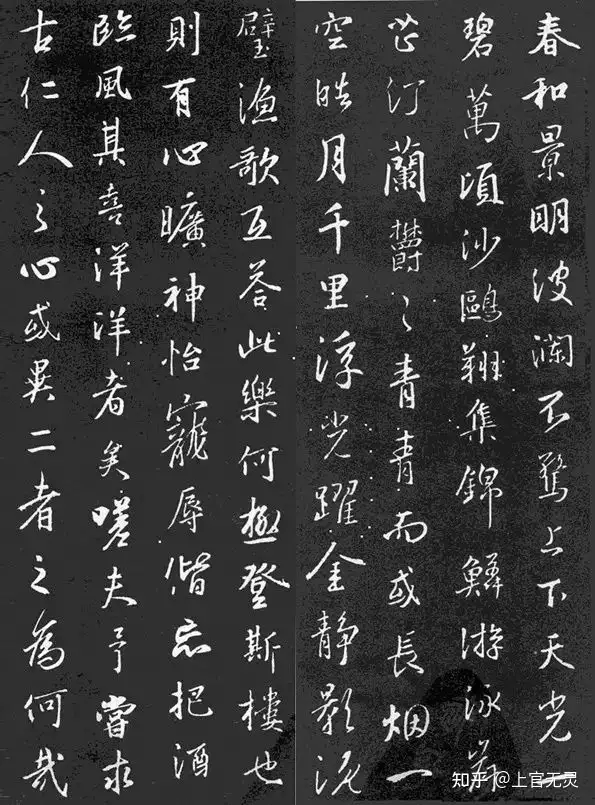 春和景明波瀾不驚上下天光一
碧萬頃沙鷗翔集錦鱗游泳岸
芷汀蘭鬱〻青青而或長烟一
空皓月千里浮光躍金静影沉
璧漁歌互荅此樂何極登斯樓也
則有心曠神怡寵辱偕忘把酒
臨風其喜洋洋者矣嗟夫予嘗求
古仁人之心或異二者之為何哉
知乎 @上官无灵